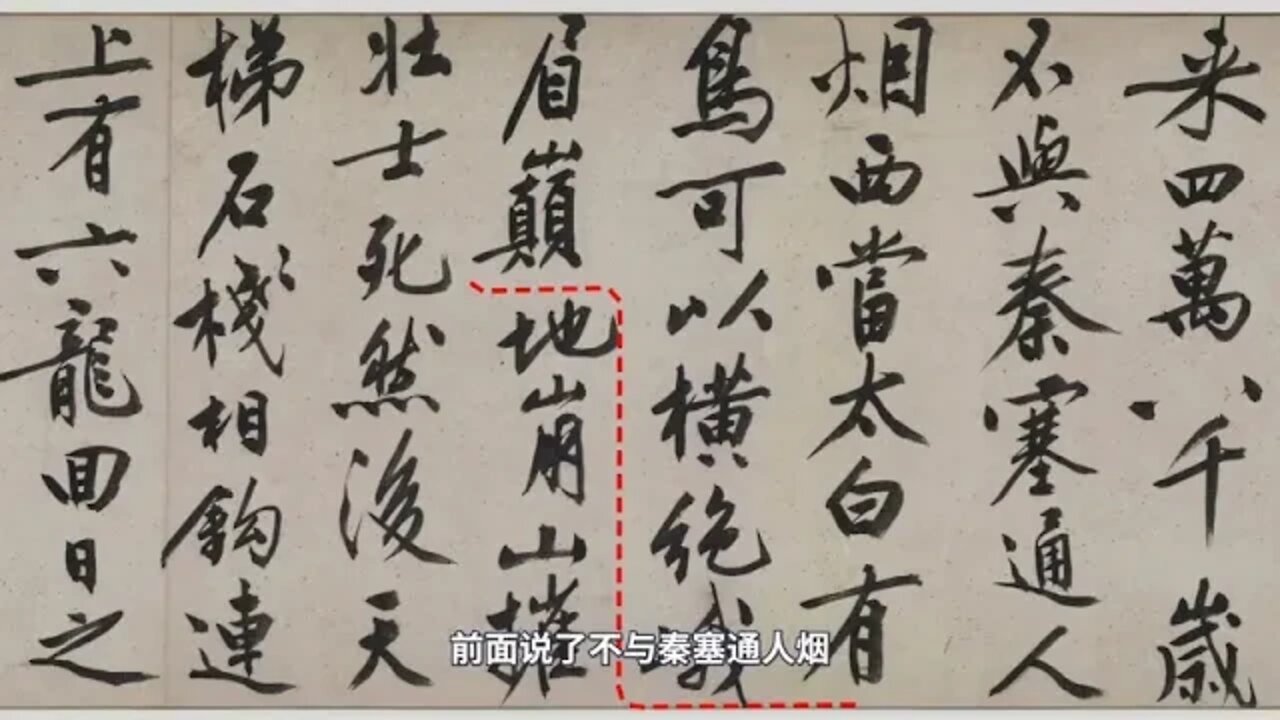 来四萬八千歲
不與秦塞通人
烟西當太白有
鳥可以橫絶峨
眉巔地崩山摧
壯士死然後天
梯石棧相鈎連
上有六龍回日之
前面说了不与秦塞通人烟